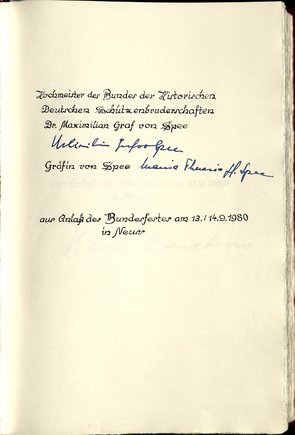 Hochmeister des Bundes der Historischen
Deutschen Schützenbruderschaften
Dr. Maximilian Graf von Spee
Gräfin von Spee Maria Theresia Spee
aus Anlaß des Bundesfestes am 13./14.9.1980
in Neuss